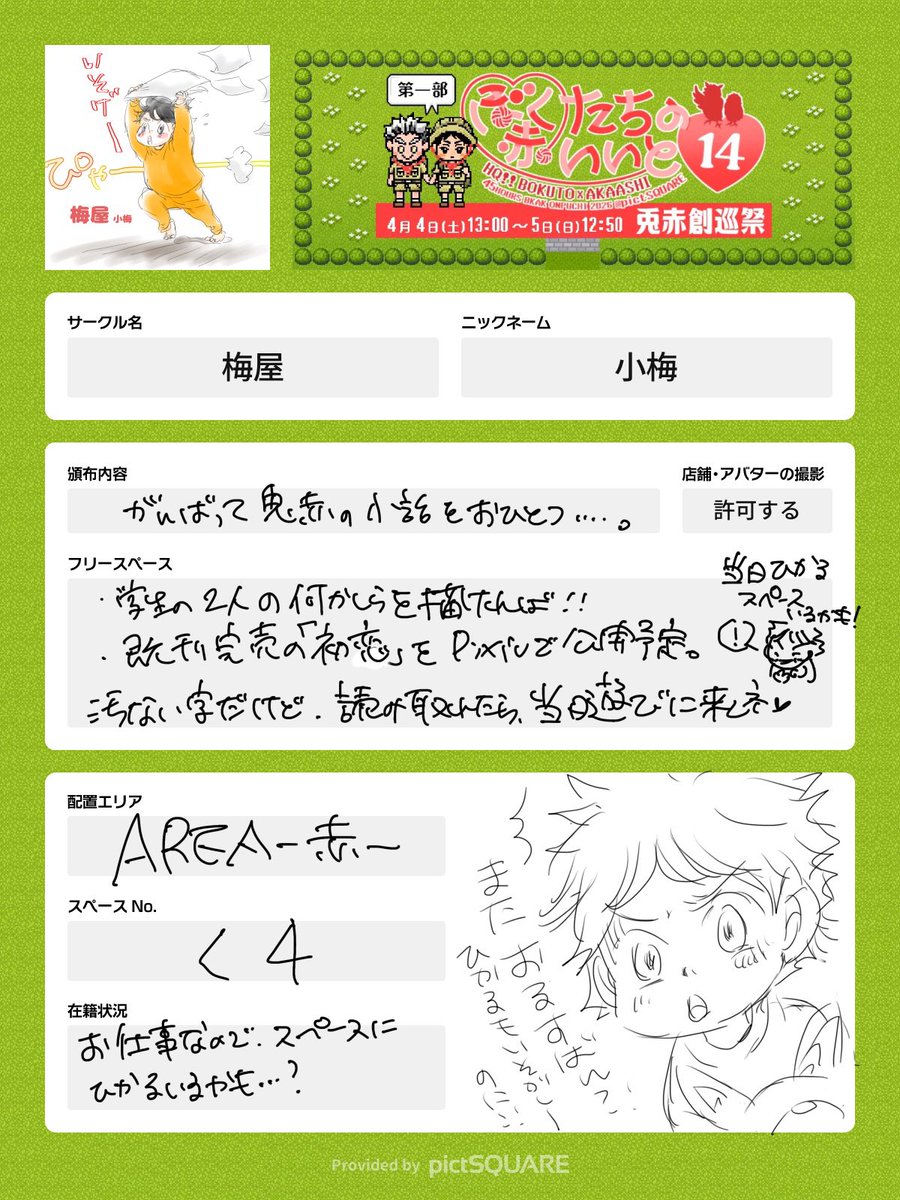 いそげー
ぴゃー
梅屋 小梅
第一部
ぼくたちの
赤いいと
14
HQ!! BOKUTO×AKAASHI
45HOURS BKAK ONPUCHI 2026 @pictSQUARE
4月4日(土)13:00～5日(日)12:50 兎赤創巡祭
サークル名
梅屋
ニックネーム
小梅
頒布内容
がんばって兎赤の小話をおひとつ…。
店舗・アバターの撮影
許可する
フリースペース
当日ひかる
スペース
いるかも!
・学生の2人の何かしらを描けたんば!!
・既刊完売の「初恋」をpixivで公開予定。
汚ない字だけど、読み取れたら、当日遊びに来てネ
配置エリア
AREA-赤-
スペースNo.
く4
在籍状況
お仕事なので、スペースに
ひかるいるかも…?
また
おるすばんっ
ひかるもいそがし
のに…
Provided by pictSQUARE